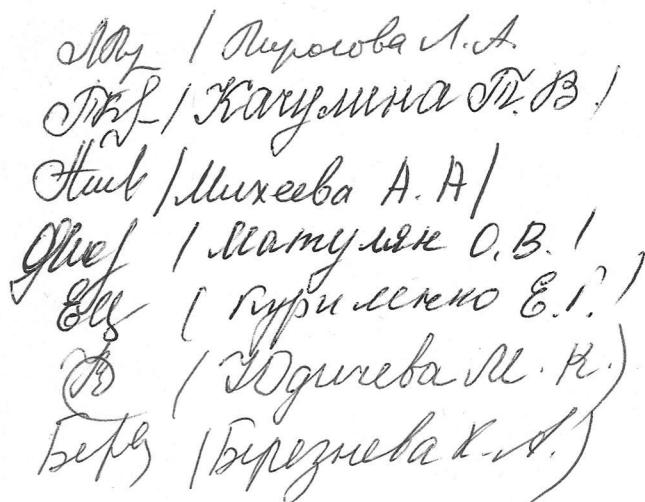 / Пирогова Л.А.
/ Качулина Т.В /
/ Михеева А.А /
/ Матулян О.В. /
/ Куриленко Е.Г. /
/ Юдичева М.К. )
Берез / Березнева Х.А. /